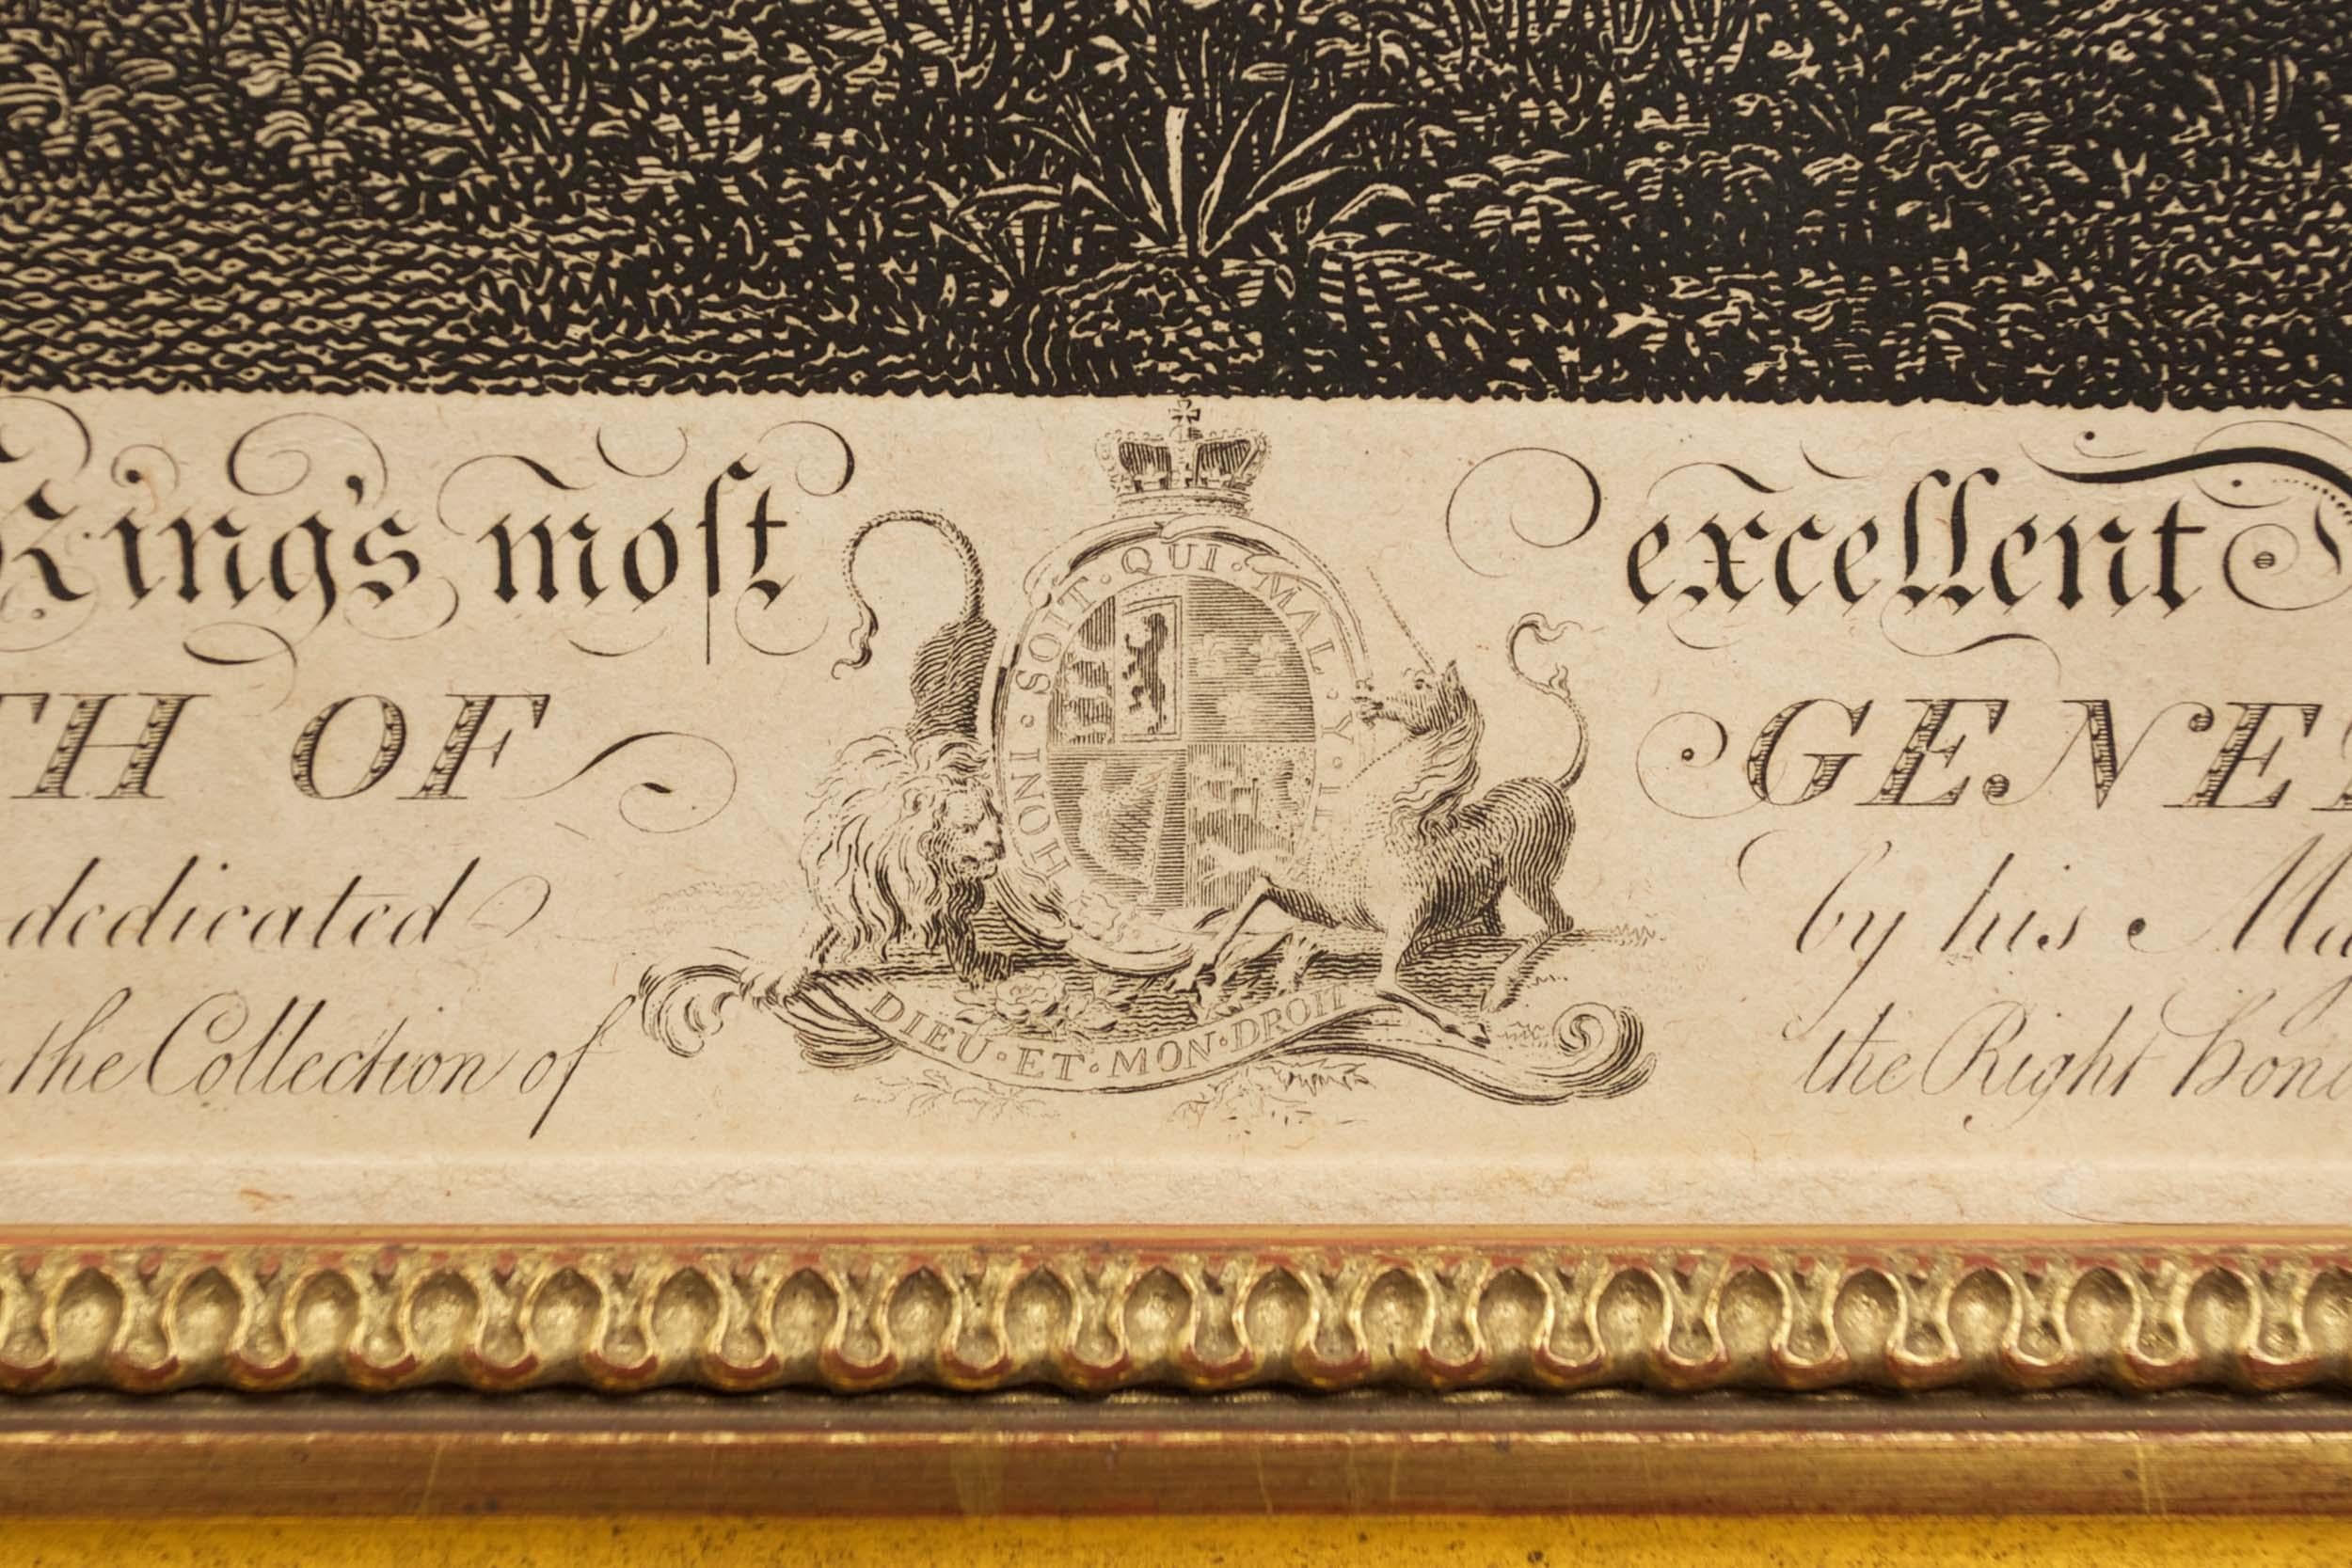 King's moſt excellent
TH OF GENE
dedicated by his
the Collection of the Right Hon
HONI · SOIT · QUI · MAL · Y ·
DIEU · ET · MON · DROIT